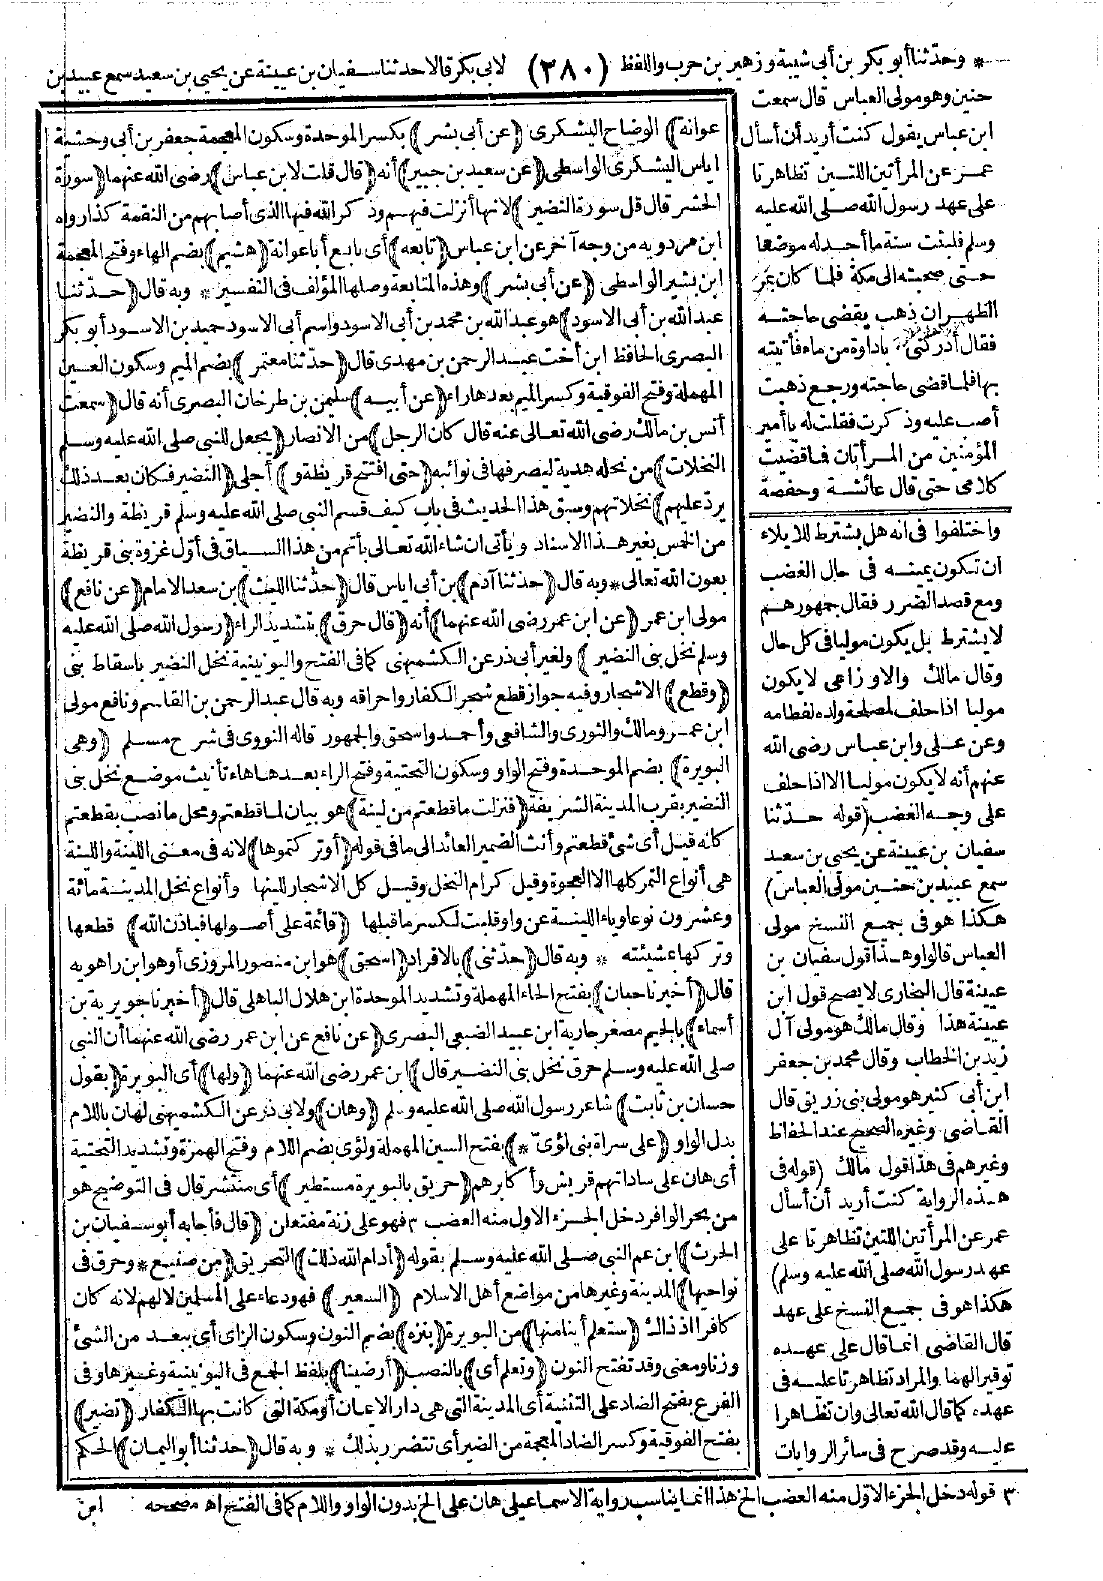 * وحدثنا أبو بكر بن أبي شيبة وزهير بن حرب واللفظ (٣٨٠) لابي بكر قالا حدثنا سفيان بن عيينة عن يحيى بن سعيد سمع عبيد بن
حنين وهو مولى العباس قال سمعت
ابن عباس يقول كنت أريد أن أسأل
عمر عن المرأتين اللتين تظاهرتا
على عهد رسول الله صلى الله عليه
وسلم فلبثت سنة ما أجد له موضعا
حتى صحبته الى مكة فلما كان بمر
الظهران ذهب يقضى حاجته
فقال أدركني باداوة من ماء فأتيته
بها فلما قضى حاجته ورجع ذهبت
أصب عليه وذكرت فقلت له يا أمير
المؤمنين من المرأتان فما قضيت
كلامى حتى قال عائشة وحفصة
واختلفوا فى انه هل يشترط للايلاء
ان تكون يمينه فى حال الغضب
ومع قصد الضرر فقال جمهورهم
لا يشترط بل يكون موليا فى كل حال
وقال مالك والاوزاعى لا يكون
موليا اذا حلف لمصلحة ولده لفطامه
وعن على وابن عباس رضى الله
عنهم أنه لا يكون موليا الا اذا حلف
على وجه الغضب (قوله حدثنا
سفيان بن عيينة عن يحيى بن سعيد
سمع عبيد بن حنين مولى العباس)
هكذا هو فى جميع النسخ مولى
العباس قالوا وهذا قول سفيان بن
عيينة قال البخارى لا يصح قول ابن
عيينة هذا وقال مالك هو مولى آل
زيد بن الخطاب وقال محمد بن جعفر
ابن أبى كثير هو مولى بنى زريق قال
القاضى وغيره الصحيح عند الحفاظ
وغيرهم فى هذا قول مالك (قوله فى
هذه الرواية كنت أريد أن أسأل
عمر عن المرأتين اللتين تظاهرتا على
عهد رسول الله صلى الله عليه وسلم)
هكذا هو فى جميع النسخ على عهد
قال القاضى انما قال على عهده
توقيرا لهما والمراد تظاهرتا عليه فى
عهده كما قال الله تعالى وان تظاهرا
عليه وقد صرح فى سائر الروايات
عوانة) الوضاح اليشكرى (عن أبى بشر) بكسر الموحدة وسكون المعجمة جعفر بن أبى وحشية
اياس اليشكرى الواسطى (عن سعيد بن جبير) أنه (قال قلت لابن عباس) رضى الله عنهما (سورة
الحشر قال قل سورة النضير) لانها أنزلت فيهم وذكر الله فيها الذى أصابهم من النقمة كذا رواه
ابن مردويه من وجه آخر عن ابن عباس (تابعه) أى تابع أبا عوانة (هشيم) بضم الهاء وفتح المعجمة
ابن بشير الواسطى (عن أبى بشر) وهذه المتابعة وصلها المؤلف فى التفسير * وبه قال (حدثنا
عبد الله بن أبى الاسود) هو عبد الله بن محمد بن أبى الاسود واسم أبى الاسود حميد بن الاسود أبو بكر
البصرى الحافظ ابن أخت عبد الرحمن بن مهدى قال (حدثنا معتمر) بضم الميم وسكون العين
المهملة وفتح الفوقية وكسر الميم بعدها راء (عن أبيه) سليمن بن طرخان البصرى أنه قال (سمعت
أنس بن مالك رضى الله تعالى عنه قال كان الرجل) من الانصار (يجعل للنبى صلى الله عليه وسلم
النخلات) من نخله هدية ليصرفها فى نوائبه (حتى افتتح قريظة و) أجلى (النضير فكان بعد ذلك
يرد عليهم) نخلاتهم وسبق هذا الحديث فى باب كيف قسم النبى صلى الله عليه وسلم قريظة والنضير
من الخمس بغير هذا الاسناد ويأتى ان شاء الله تعالى بأتم من هذا السياق فى أول غزوة بنى قريظة
بعون الله تعالى * وبه قال (حدثنا آدم) بن أبى اياس قال (حدثنا الليث) بن سعد الامام (عن نافع)
مولى ابن عمر (عن ابن عمر رضى الله عنهما) أنه (قال حرق) بتشديد الراء (رسول الله صلى الله عليه
وسلم نخل بنى النضير) ولغير أبى ذر عن الكشميهنى كما فى الفتح واليونينية نخل النضير باسقاط بنى
(وقطع) الاشجار وفيه جواز قطع شجر الكفار واحراقه وبه قال عبد الرحمن بن القاسم ونافع مولى
ابن عمر ومالك والثورى والشافعى وأحمد واسحق والجمهور قاله النووى فى شرح مسلم (وهى
البويرة) بضم الموحدة وفتح الواو وسكون التحتية وفتح الراء بعدها هاء تأنيث موضع نخل بنى
النضير بقرب المدينة الشريفة (فنزلت ما قطعتم من لينة) هو بيان لما قطعتم ومحل ما نصب بقطعتم
كأنه قيل أى شئ قطعتم وأنث الضمير العائد الى ما فى قوله (أو تركتموها) لانه فى معنى اللينة واللينة
هى أنواع التمر كلها الا العجوة وقيل كرام النخل وقيل كل الاشجار للينها وأنواع نخل المدينة مائة
وعشرون نوعا وياء اللينة عن واو قلبت لكسر ما قبلها (قائمة على أصولها فباذن الله) قطعها
وتركها بمشيئته * وبه قال (حدثنى) بالافراد (اسحق) هو ابن منصور المروزى أو هو ابن راهويه
قال (أخبرنا حبان) بفتح الحاء المهملة وتشديد الموحدة ابن هلال الباهلى قال (أخبرنا جويرية بن
أسماء) بالجيم مصغر جارية ابن عبيد الضبعى البصرى (عن نافع عن ابن عمر رضى الله عنهما أن النبى
صلى الله عليه وسلم حرق نخل بنى النضير قال) ابن عمر رضى الله عنهما (ولها) أى البويرة (يقول
حسان بن ثابت) شاعر رسول الله صلى الله عليه وسلم (وهان) ولابى ذر عن الكشميهنى لهان باللام
بدل الواو (على سراة بنى لؤى *) بفتح السين المهملة ولؤى بضم اللام وفتح الهمزة وتشديد التحتية
أى هان على ساداتهم قريش وأكابرهم (حريق بالبويرة مستطير) أى منتشر قال فى التوضيح هو
من بحر الوافر دخل الجزء الاول منه العضب ٣ فهو على زنة مفتعلن (قال فأجابه أبو سفيان بن
الحرث) ابن عم النبى صلى الله عليه وسلم بقوله (أدام الله ذلك) التحريق (من صنيع * وحرق فى
نواحيها) المدينة وغيرها من مواضع أهل الاسلام (السعير) فهو دعاء على المسلمين لا لهم لانه كان
كافرا اذ ذاك (ستعلم أينا منها) من البويرة (بنزه) بضم النون وسكون الزاى أى ببعد من الشئ
وزنا ومعنى وقد تفتح النون (وتعلم أى) بالنصب (أرضينا) بلفظ الجمع فى اليونينية وغيرها وفى
الفرع بفتح الضاد على التثنية أى المدينة التى هى دار الاعيان أو مكة التى كانت بها الكفار (تضير)
بفتح الفوقية وكسر الضاد المعجمة من الضير أى تتضرر بذلك * وبه قال (حدثنا أبو اليمان) الحكم
٣ قوله دخل الجزء الاول منه العضب الخ هذا انما يناسب رواية الاسماعيلى هان على الخ بدون الواو واللام كما فى الفتح اه مصححه ابن